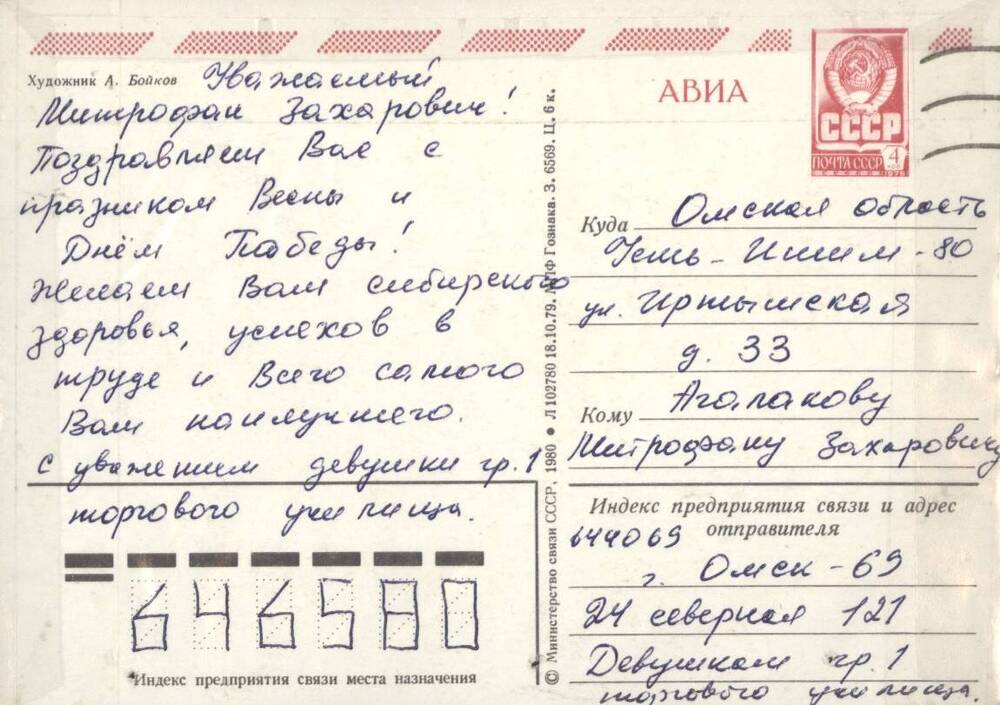 Художник А. Бойков
Уважаемый
Митрофан Захарович!
Поздравляем Вас с
празником Весны и
Днём Победы!
Желаем Вам сибирского
здоровья, успехов в
труде и Всего самого
Вам наилучшего.
С уважением девушки гр. 1
торгового училища.
646580
Индекс предприятия связи места назначения
© Министерство связи СССР, 1980 ● Л 102780 18.10.79. МПФ Гознака. З. 6569. Ц. 6 к.
АВИА
СССР
ПОЧТА СССР 4
1978
Куда Омская область
Усть-Ишим-80
ул. Иртышская
д. 33
Кому Агалакову
Митрофану Захаровичу
Индекс предприятия связи и адрес
отправителя
644069
г. Омск-69
24 северная 121
Девушкам гр. 1
торгового училища.